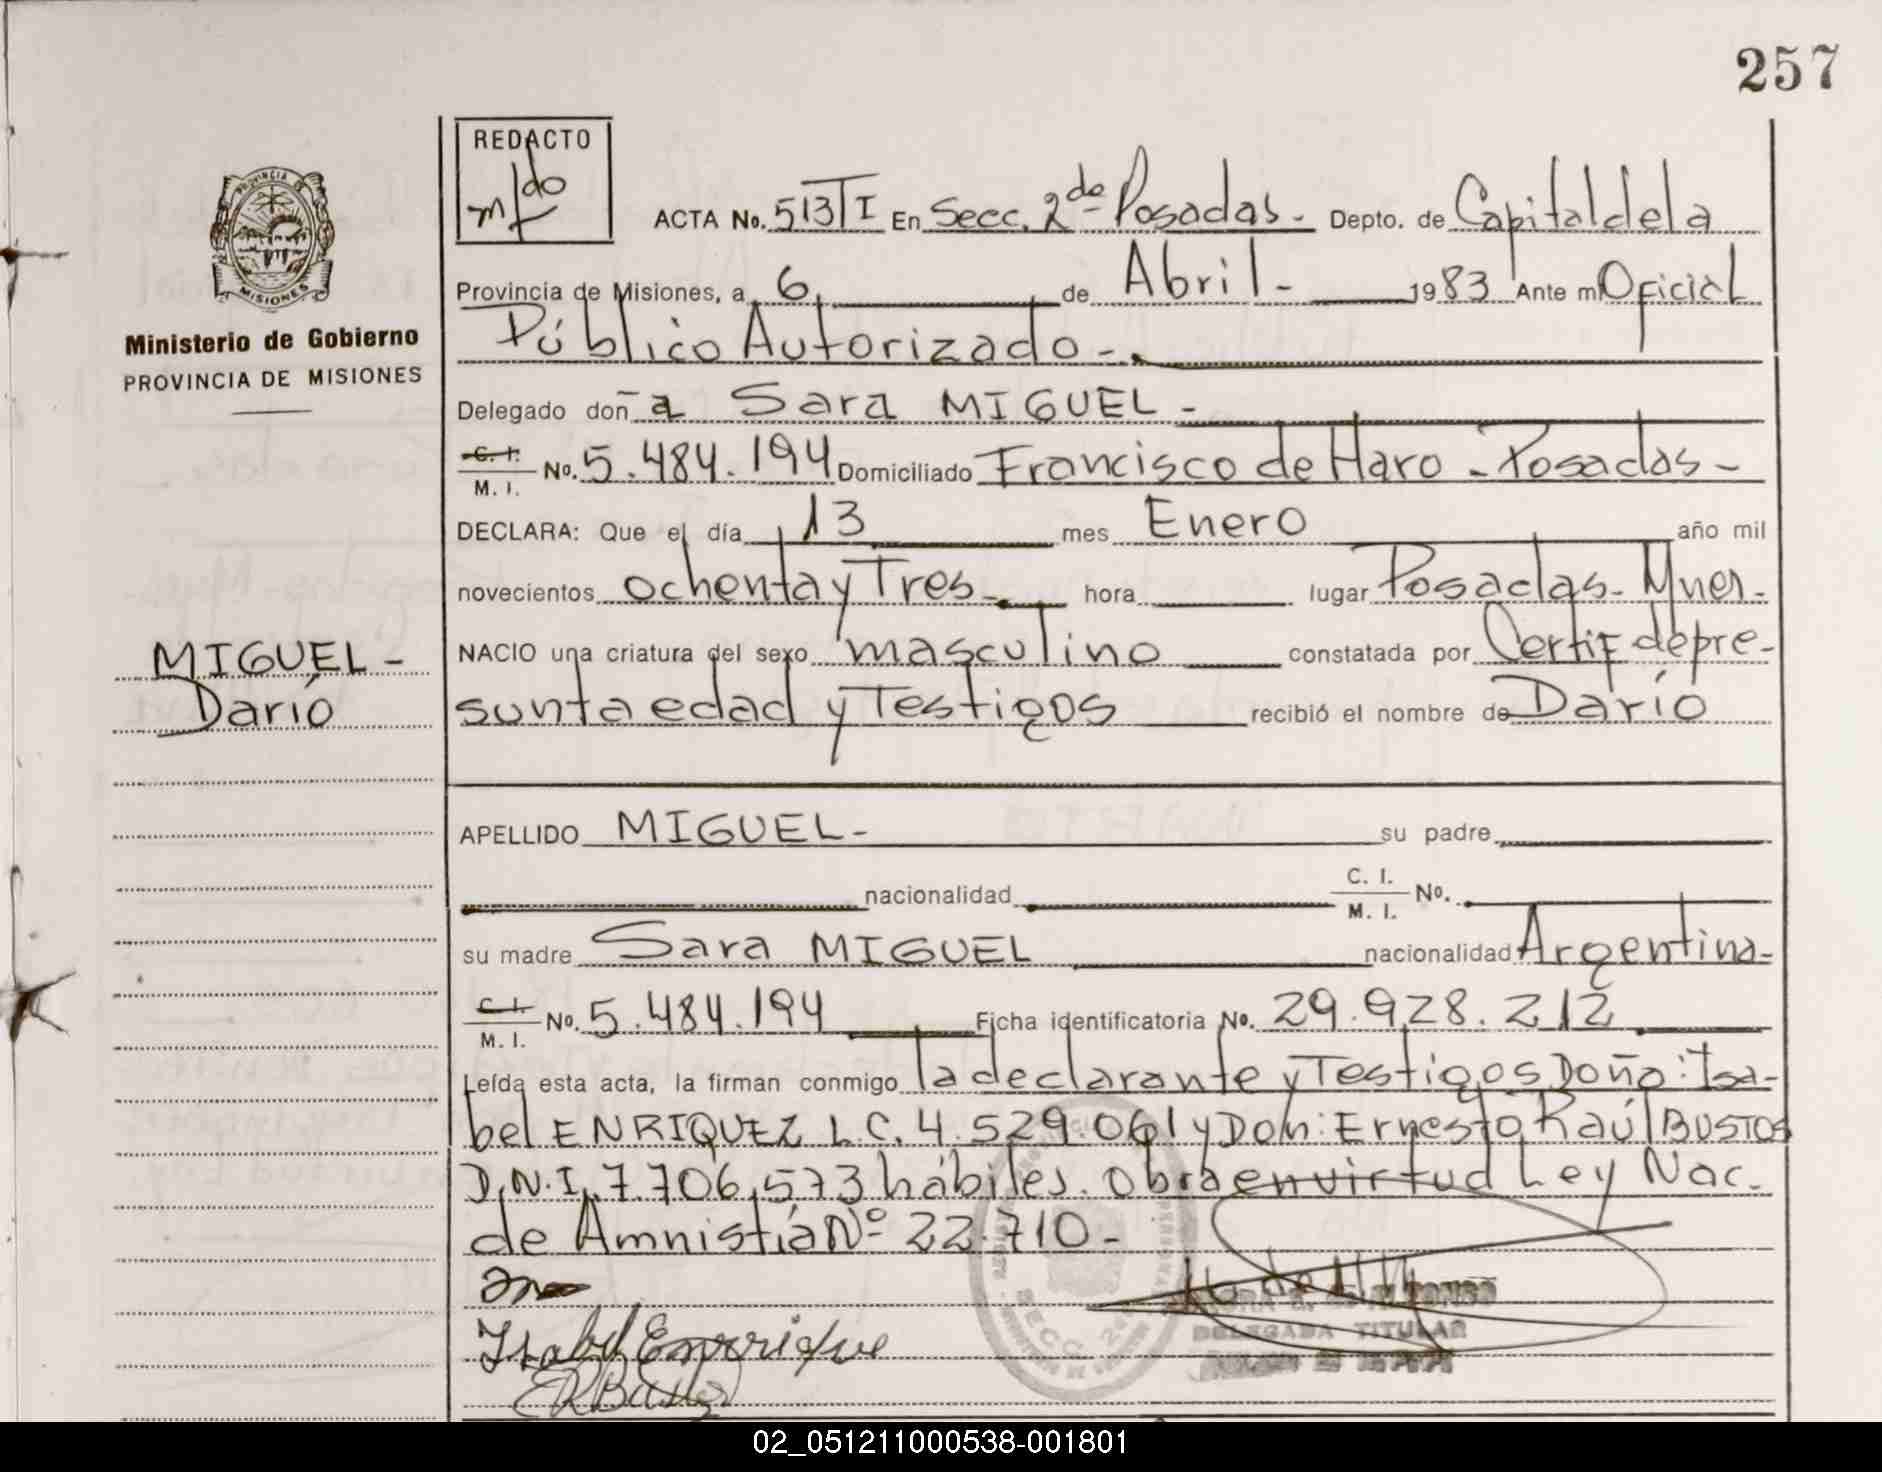 257
REDACTO
PROVINCIA DE
MISIONES
Ministerio de Gobierno
PROVINCIA DE MISIONES
ACTA No. 513 TI En Secc. 2da Posadas- Depto. de Capital de la
Provincia de Misiones, a 6 de Abril- 1983 Ante mí Oficial
Público Autorizado-.
Delegado doña Sara MIGUEL-
C. I. M. I. No. 5.484.194 Domiciliado Francisco de Haro - Posadas-
DECLARA: Que el día 13 mes Enero año mil
novecientos ochenta y Tres- hora lugar Posadas-
NACIO una criatura del sexo masculino constatada por Certif de pre-
sunta edad y Testigos recibió el nombre de Darío
MIGUEL-
Darío
APELLIDO MIGUEL- su padre
nacionalidad C. I. M. I. No.
su madre Sara MIGUEL nacionalidad Argentina-
C. I. M. I. No. 5.484.194 Ficha identificatoria No. 29.928.212
Leída esta acta, la firman conmigo la declarante y Testigos Doña: Isa-
bel ENRIQUEZ L.C. 4.529.061 y Don: Ernesto Raúl BUSTOS
D.N.I. 7.706.573 hábiles. Obra en virtud Ley Nac.
de Amnistía Nº 22.710-
Isabel Enrrique
DELEGADA TITULAR
02_051211000538-001801